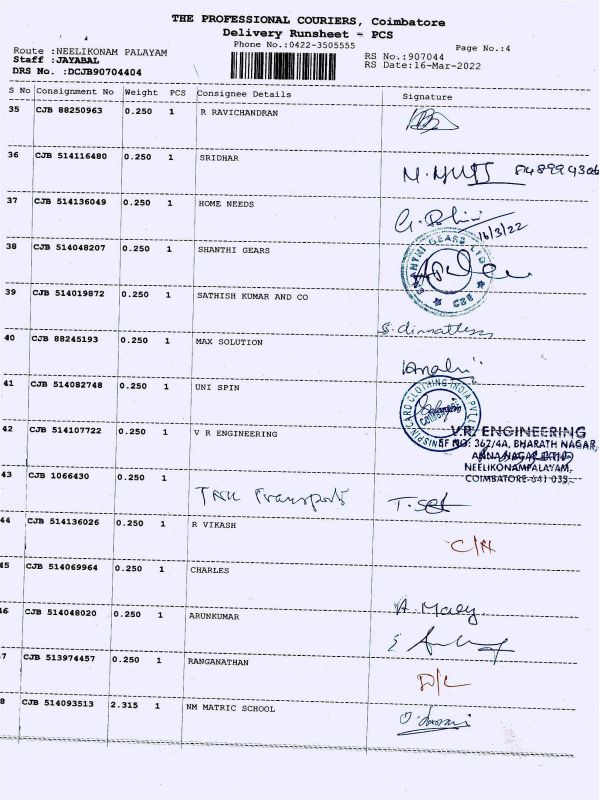 THE PROFESSIONAL COURIERS, Coimbatore
Delivery Runsheet - PCS
Phone No.:0422-3505555
Page No.:4
Route :NEELIKONAM PALAYAM
Staff :JAYABAL
DRS No. :DCJB90704404
RS No.:907044
RS Date:16-Mar-2022
S No Consignment No Weight PCS Consignee Details Signature
35 CJB 88250963 0.250 1 R RAVICHANDRAN
36 CJB 514116480 0.250 1 SRIDHAR
37 CJB 514136049 0.250 1 HOME NEEDS
16/3/22
38 CJB 514048207 0.250 1 SHANTHI GEARS
SHANTHI GEARS LTD
CBE
39 CJB 514019872 0.250 1 SATHISH KUMAR AND CO
40 CJB 88245193 0.250 1 MAX SOLUTION
41 CJB 514082748 0.250 1 UNI SPIN
CARD CLOTHING INDIA PVT
42 CJB 514107722 0.250 1 V R ENGINEERING
V.R. ENGINEERING
SF NO: 362/4A, BHARATH NAGAR,
ANNA NAGAR
NEELIKONAMPALAYAM,
COIMBATORE-641 033.
43 CJB 1066430 0.250 1 TNK Transports
44 CJB 514136026 0.250 1 R VIKASH
45 CJB 514069964 0.250 1 CHARLES
46 CJB 514048020 0.250 1 ARUNKUMAR
7 CJB 513974457 0.250 1 RANGANATHAN
D/L
8 CJB 514093513 2.315 1 NM MATRIC SCHOOL